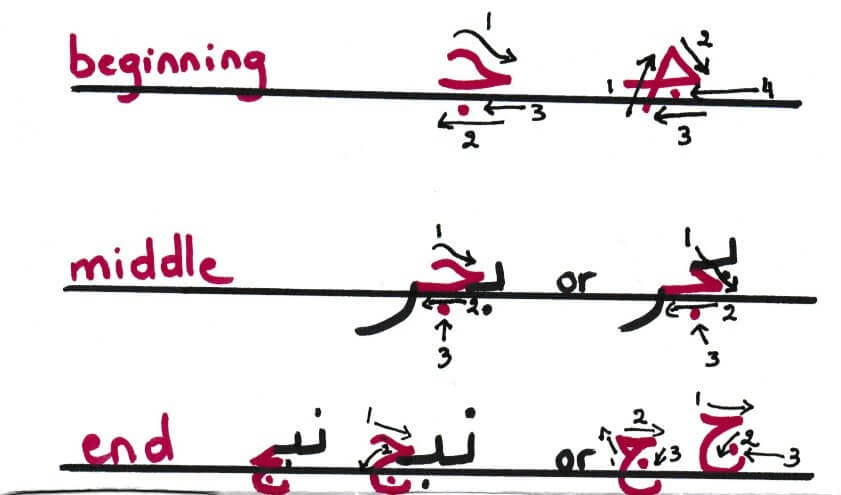 beginning جـ 1 2 3 جـ 1 2 3 4
middle بجر 1 2 3 or بجر 1 2 3
end 1 2 or ج 1 2 3 ج 1 2 3